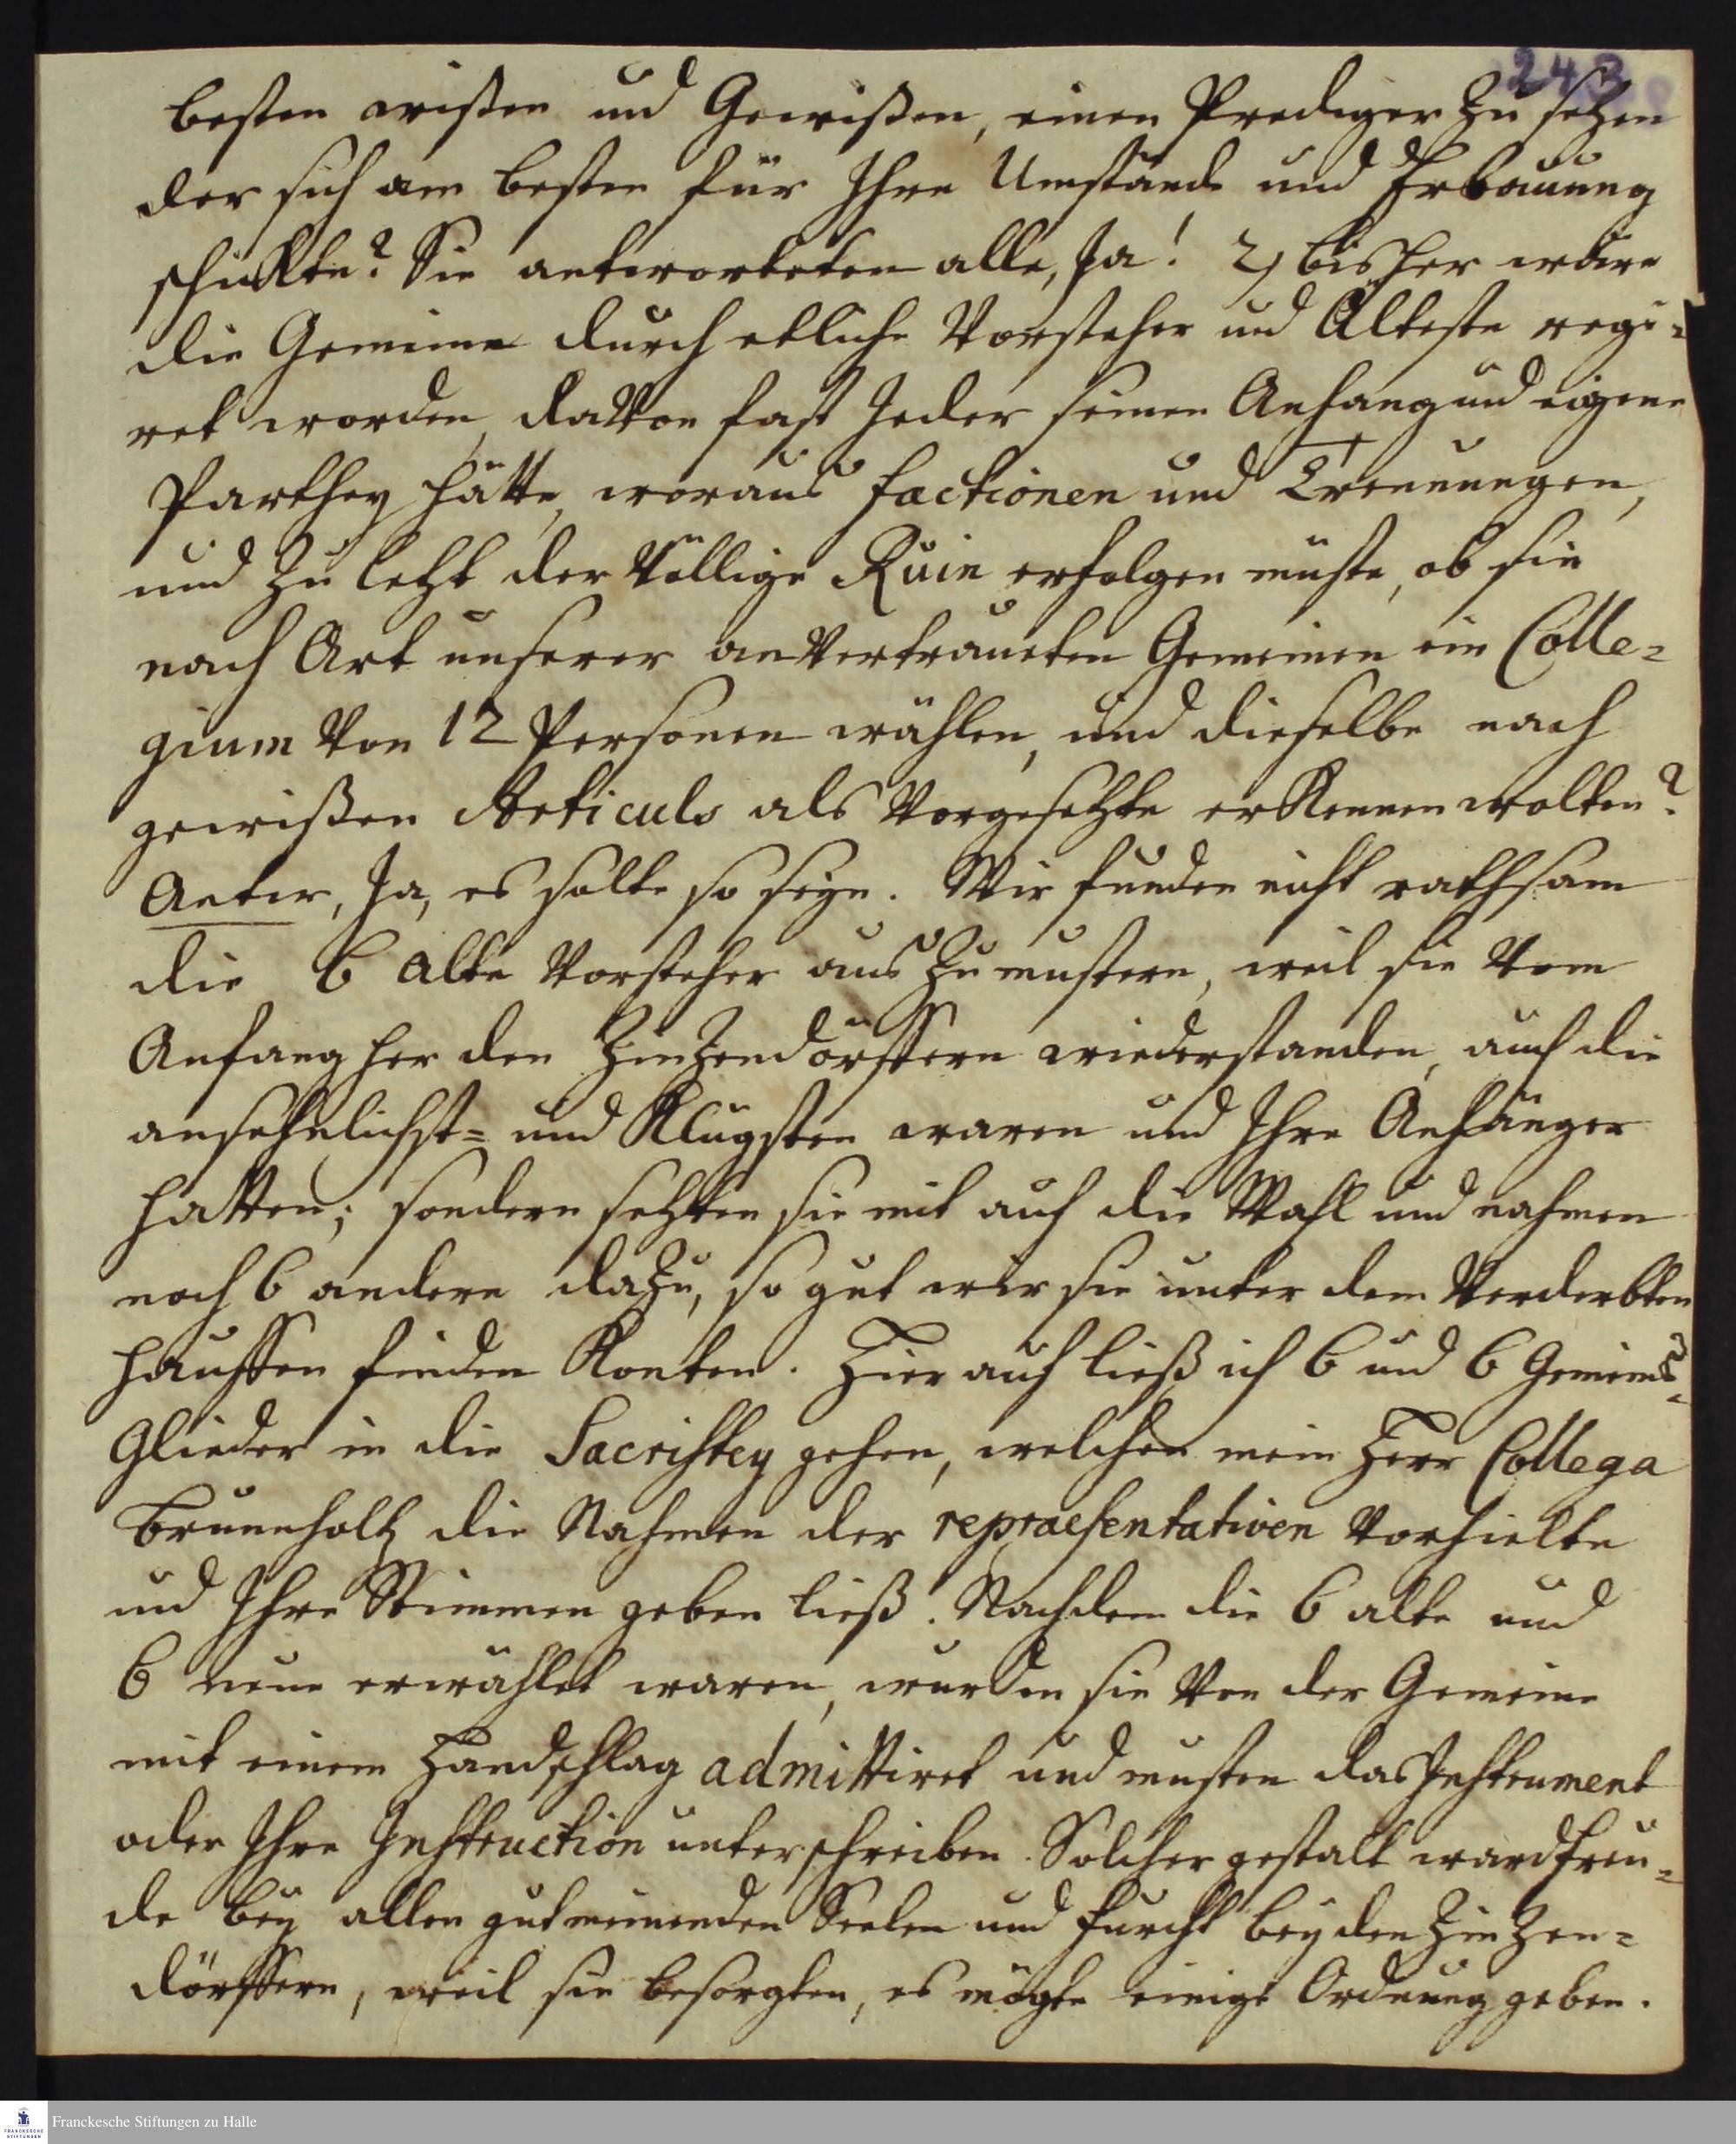 243
besten wißen und Gewißen, einen Prediger zu setzen
der sich am besten für Ihre Umstände und Erbauung
schickte? Sie antworteten alle, Ja! 2) bisher wäre
die Gemeine durch etliche Vorsteher und Älteste regi=
ret worden, davon fast Jeder seinen Anhang und eigene
Parthey hätte, woraus factionen und Trennungen,
und zu letzt der völlige Ruin erfolgen müste, ob sie
nach Art unserer anvertraueten Gemeinen ein Colle=
gium von 12 Personen wählen, und dieselbe nach
gewißen Articuls als Vorgesetzte erkennen wolten?
Antw, Ja, es solte so seyn. Wir funden nicht rathsam
die 6 alte Vorsteher aus zu mustern, weil sie vom
Anfang her den Zinzendörffern wiederstanden, auch die
ansehnlichst= und Klügsten waren und Ihre Anhänger
hatten; sondern setzten sie mit auf die Wahl und nahmen
noch 6 andere dazu, so gut wir sie unter dem Verderbten
hauffen finden Konten. Hierauf ließ ich 6 und 6 Gemeins=
Glieder in die Sacristey gehen, welchen mein Herr Collega
Brunnholtz die Nahmen der repraesentativen vorhielte
und Ihre Stimmen geben ließ. Nachdem die 6 alte und
6 neue erwählet waren, wurden sie von der Gemeine
mit einem Handschlag admittiret und musten das Instrument
oder Ihre Instruction unterschreiben. Solcher gestalt ward Freu=
de bey allen gutmeinenden Seelen und Furcht bey den Zinzen=
dörffern, weil sie besorgten, es mögte einige Ordnung geben.
FRANCKESCHE
STIFTUNGEN
Franckesche Stiftungen zu Halle